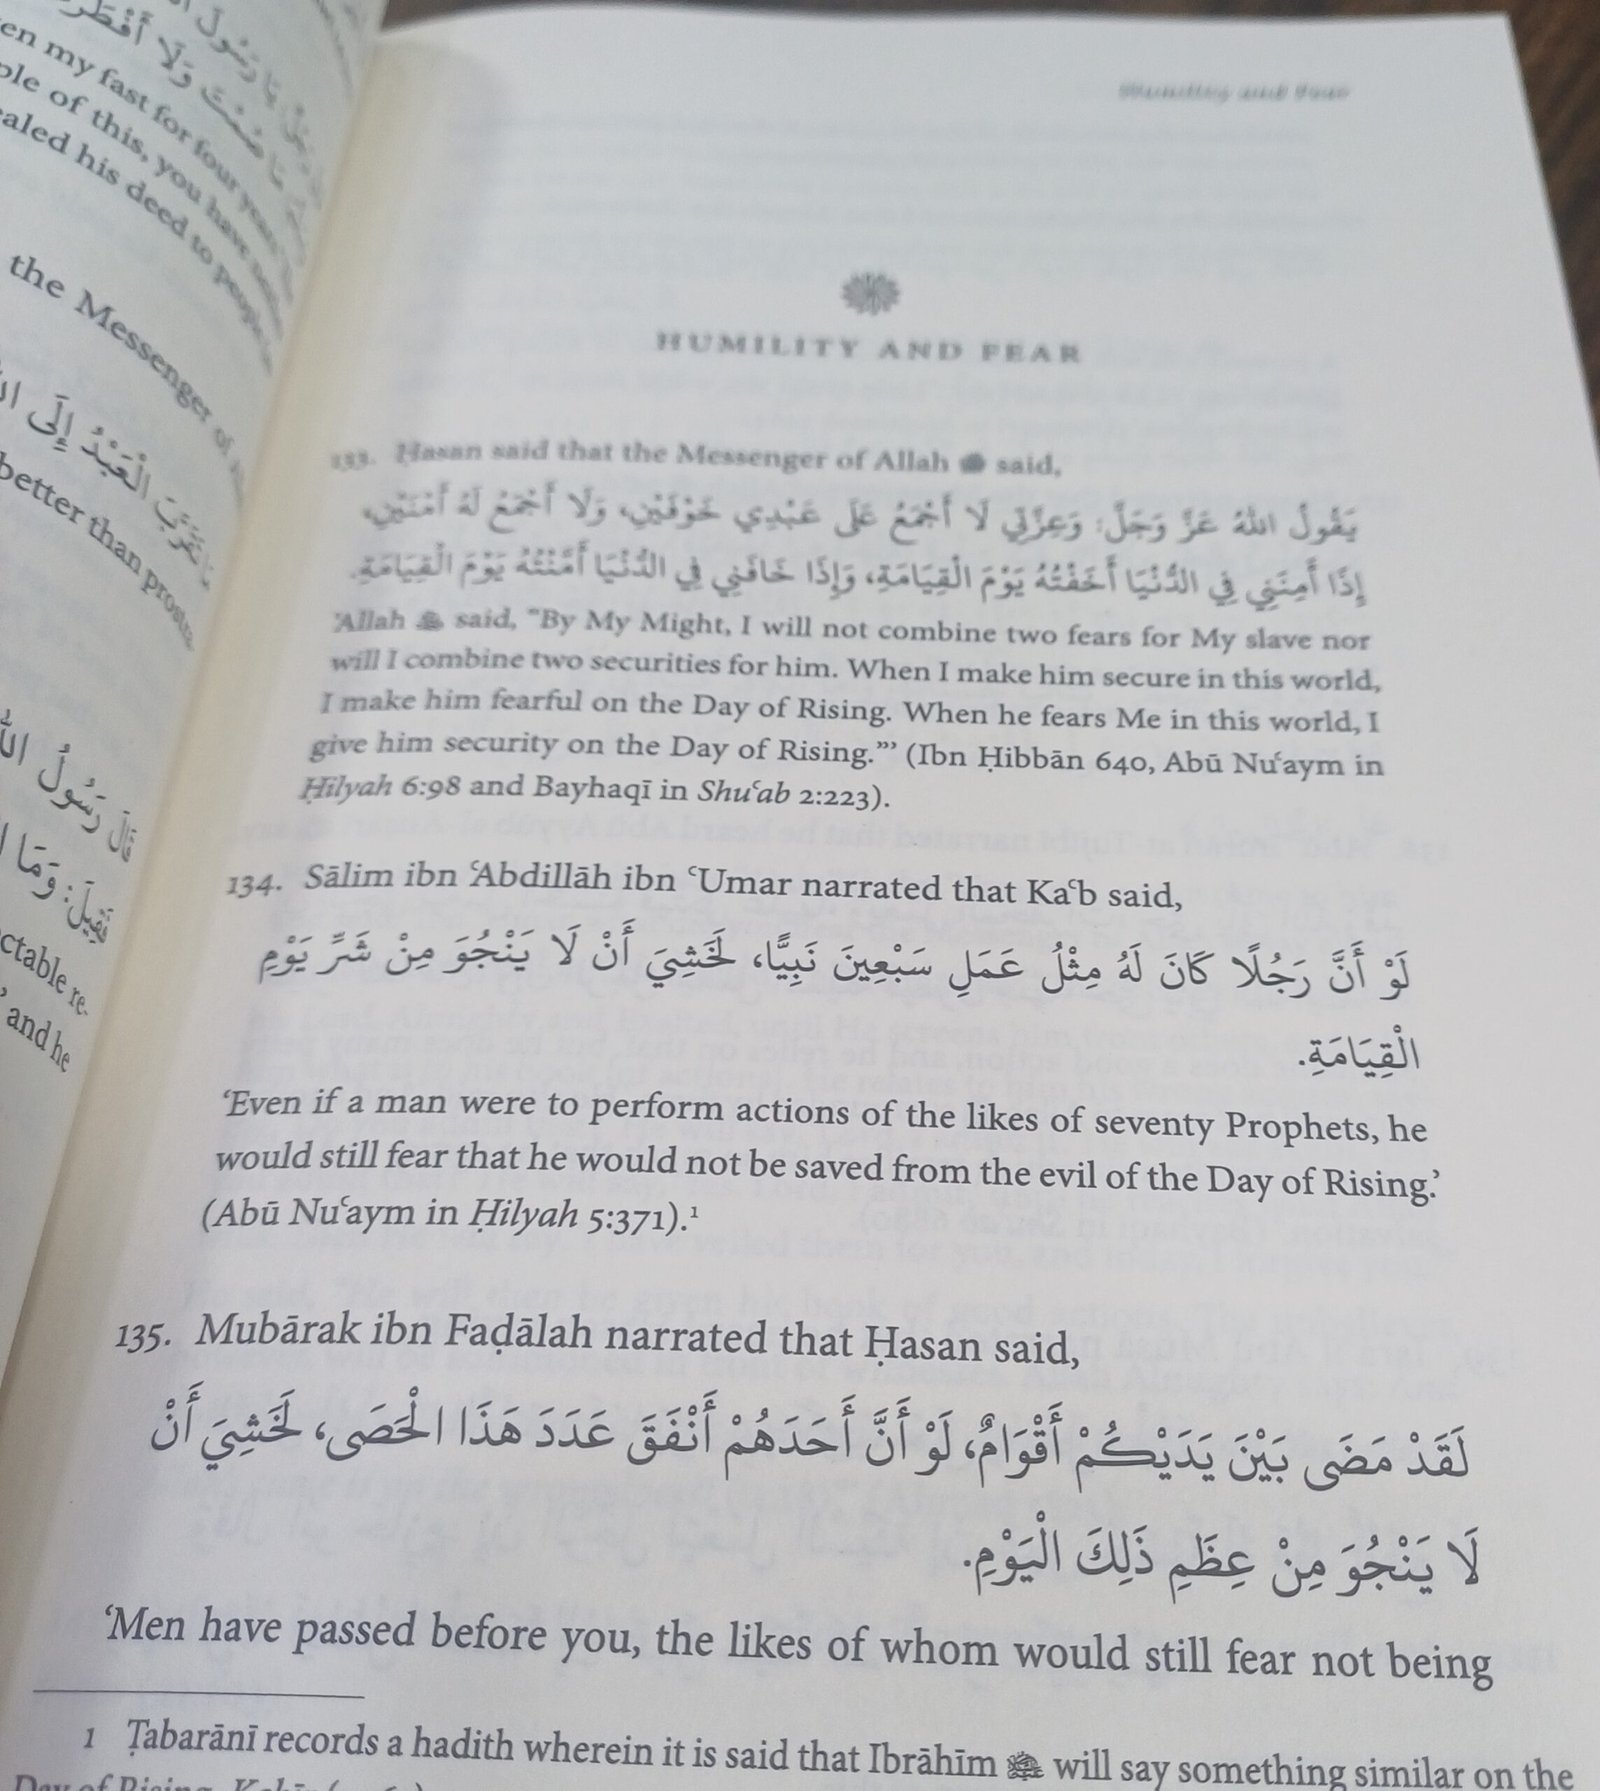 en my fast for four years
ple of this, you have
ealed his deed to people
the Messenger of
الْعَبْدُ إِلَى
better than prostr
قَالَ رَسُولُ اللَّهِ
وَمَا
ctable re-
and he
Humility and Fear
HUMILITY AND FEAR
133. Ḥasan said that the Messenger of Allah ﷺ said,
يَقُولُ اللهُ عَزَّ وَجَلَّ: وَعِزَّتِي لَا أَجْمَعُ عَلَى عَبْدِي خَوْفَيْنِ، وَلَا أَجْمَعُ لَهُ أَمْنَيْنِ،
إِذَا أَمِنَنِي فِي الدُّنْيَا أَخَفْتُهُ يَوْمَ الْقِيَامَةِ، وَإِذَا خَافَنِي فِي الدُّنْيَا أَمَّنْتُهُ يَوْمَ الْقِيَامَةِ.
‘Allah said, “By My Might, I will not combine two fears for My slave nor
will I combine two securities for him. When I make him secure in this world,
I make him fearful on the Day of Rising. When he fears Me in this world, I
give him security on the Day of Rising.”’ (Ibn Ḥibbān 640, Abū Nuʿaym in
Ḥilyah 6:98 and Bayhaqī in Shuʿab 2:223).
134. Sālim ibn ʿAbdillāh ibn ʿUmar narrated that Kaʿb said,
لَوْ أَنَّ رَجُلًا كَانَ لَهُ مِثْلُ عَمَلِ سَبْعِينَ نَبِيًّا، لَخَشِيَ أَنْ لَا يَنْجُوَ مِنْ شَرِّ يَوْمِ
الْقِيَامَةِ.
‘Even if a man were to perform actions of the likes of seventy Prophets, he
would still fear that he would not be saved from the evil of the Day of Rising.’
(Abū Nuʿaym in Ḥilyah 5:371).¹
135. Mubārak ibn Faḍālah narrated that Ḥasan said,
لَقَدْ مَضَى بَيْنَ يَدَيْكُمْ أَقْوَامٌ، لَوْ أَنَّ أَحَدَهُمْ أَنْفَقَ عَدَدَ هَذَا الْحَصَى، لَخَشِيَ أَنْ
لَا يَنْجُوَ مِنْ عِظَمِ ذَلِكَ الْيَوْمِ.
‘Men have passed before you, the likes of whom would still fear not being
1 Ṭabarānī records a hadith wherein it is said that Ibrāhīm will say something similar on the
Day of Rising.